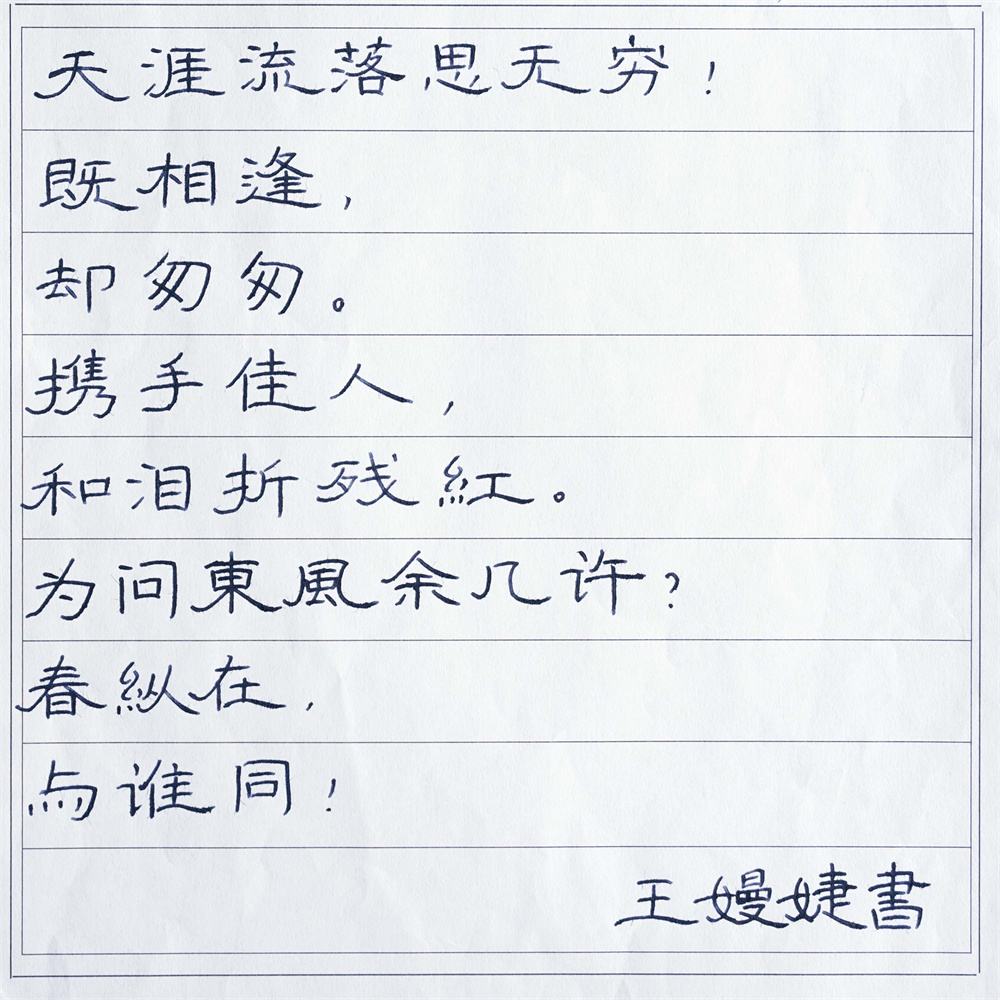 天涯流落思无穷！
既相逢，
却匆匆。
携手佳人，
和泪折残紅。
为问東風余几许？
春纵在，
与谁同！
王嫚婕書